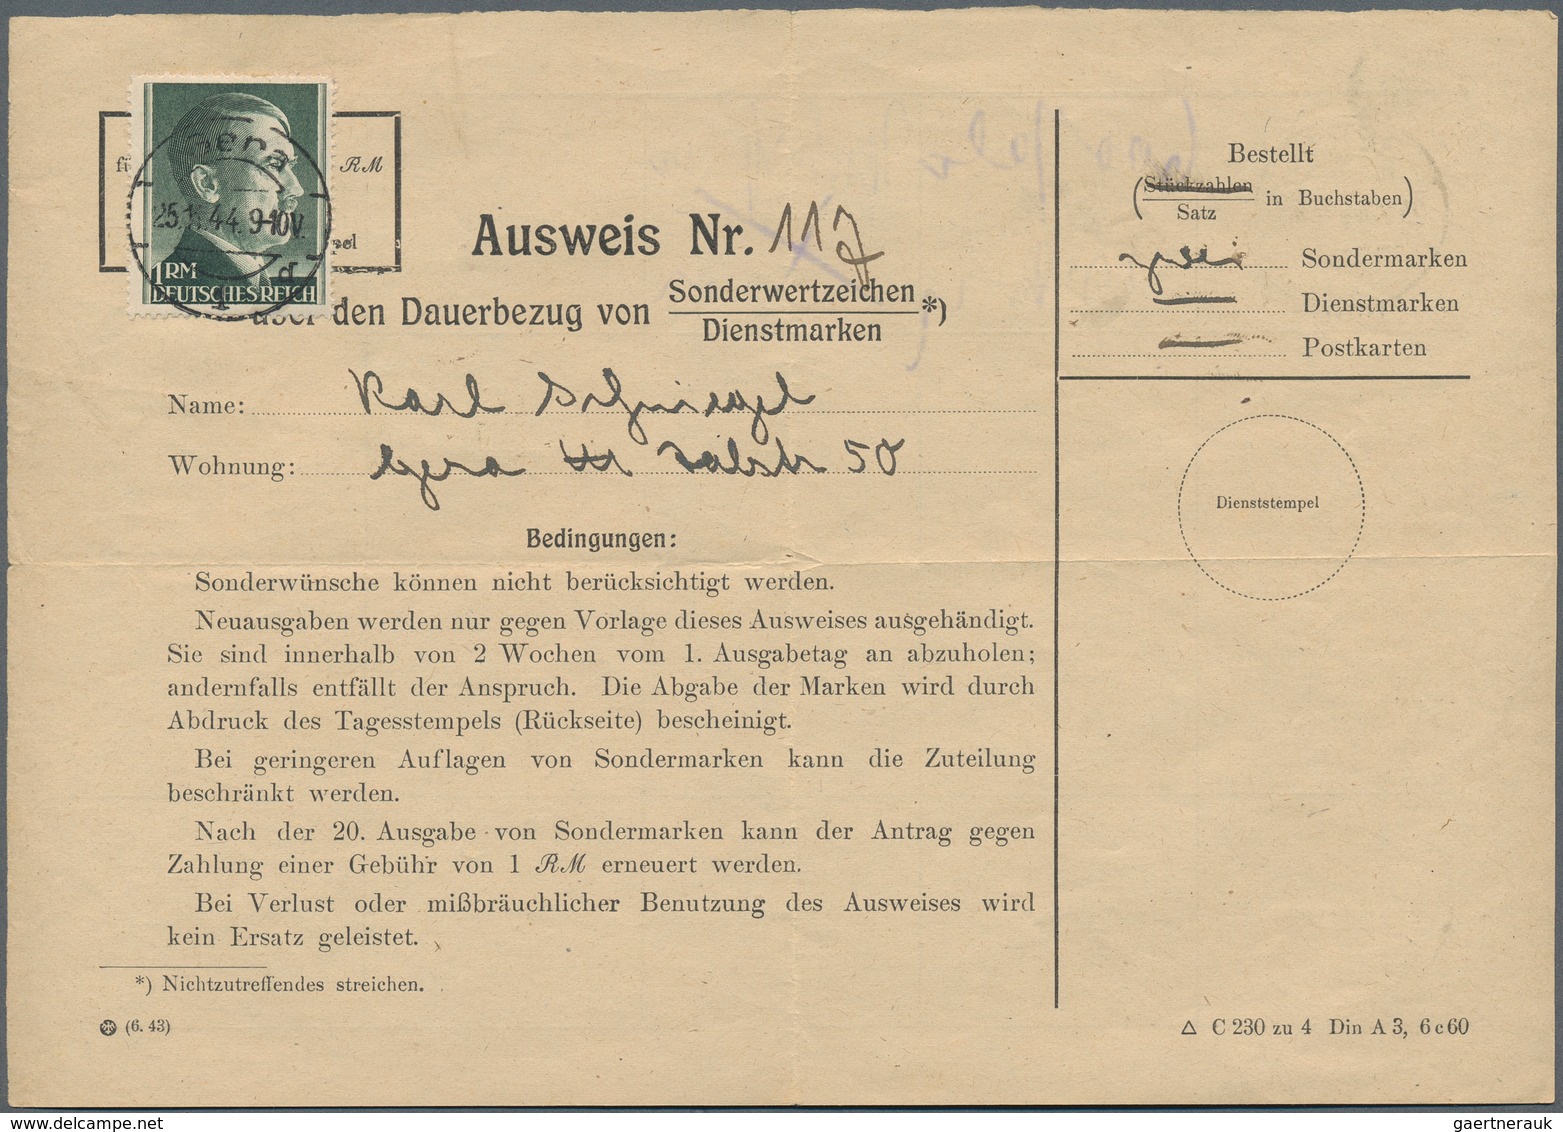 Gera
25. 44. 9-10V.
d
1 RM
DEUTSCHES REICH
RM
Ausweis Nr. 117
über den Dauerbezug von Sonderwertzeichen
Dienstmarken *)
Name: Karl
Wohnung: Gera 50
Bestellt
(Stückzahlen
Satz in Buchstaben)
zwei Sondermarken
Dienstmarken
Postkarten
Dienststempel
Bedingungen:
Sonderwünsche können nicht berücksichtigt werden.
Neuausgaben werden nur gegen Vorlage dieses Ausweises ausgehändigt.
Sie sind innerhalb von 2 Wochen vom 1. Ausgabetag an abzuholen;
andernfalls entfällt der Anspruch. Die Abgabe der Marken wird durch
Abdruck des Tagesstempels (Rückseite) bescheinigt.
Bei geringeren Auflagen von Sondermarken kann die Zuteilung
beschränkt werden.
Nach der 20. Ausgabe von Sondermarken kann der Antrag gegen
Zahlung einer Gebühr von 1 RM erneuert werden.
Bei Verlust oder mißbräuchlicher Benutzung des Ausweises wird
kein Ersatz geleistet.
*) Nichtzutreffendes streichen.
(6. 43)
△ C 230 zu 4 Din A 3, 6 c 60
www.delcampe.net
gaertnerauk